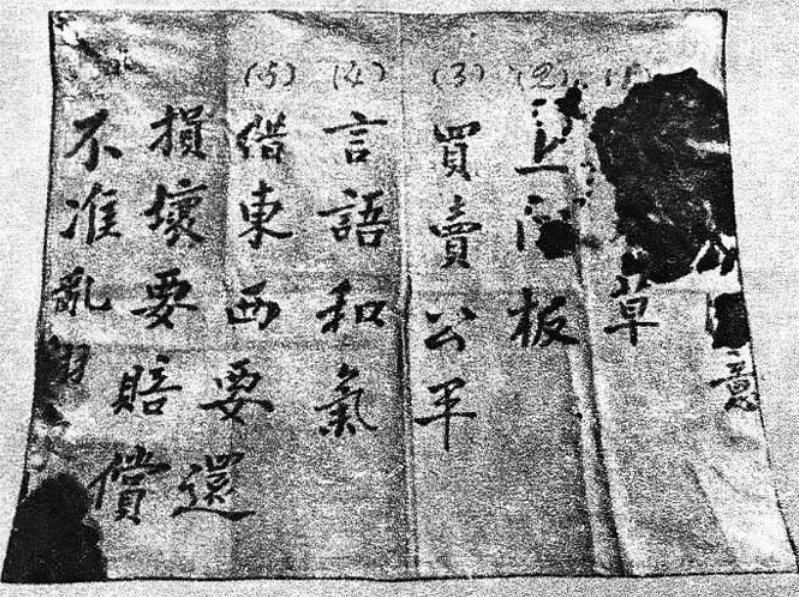 意
(1) 草
(2) 上门板
(3) 買賣公平
(4) 言語和氣
(5) 借東西要還
損壞要賠償
不准亂